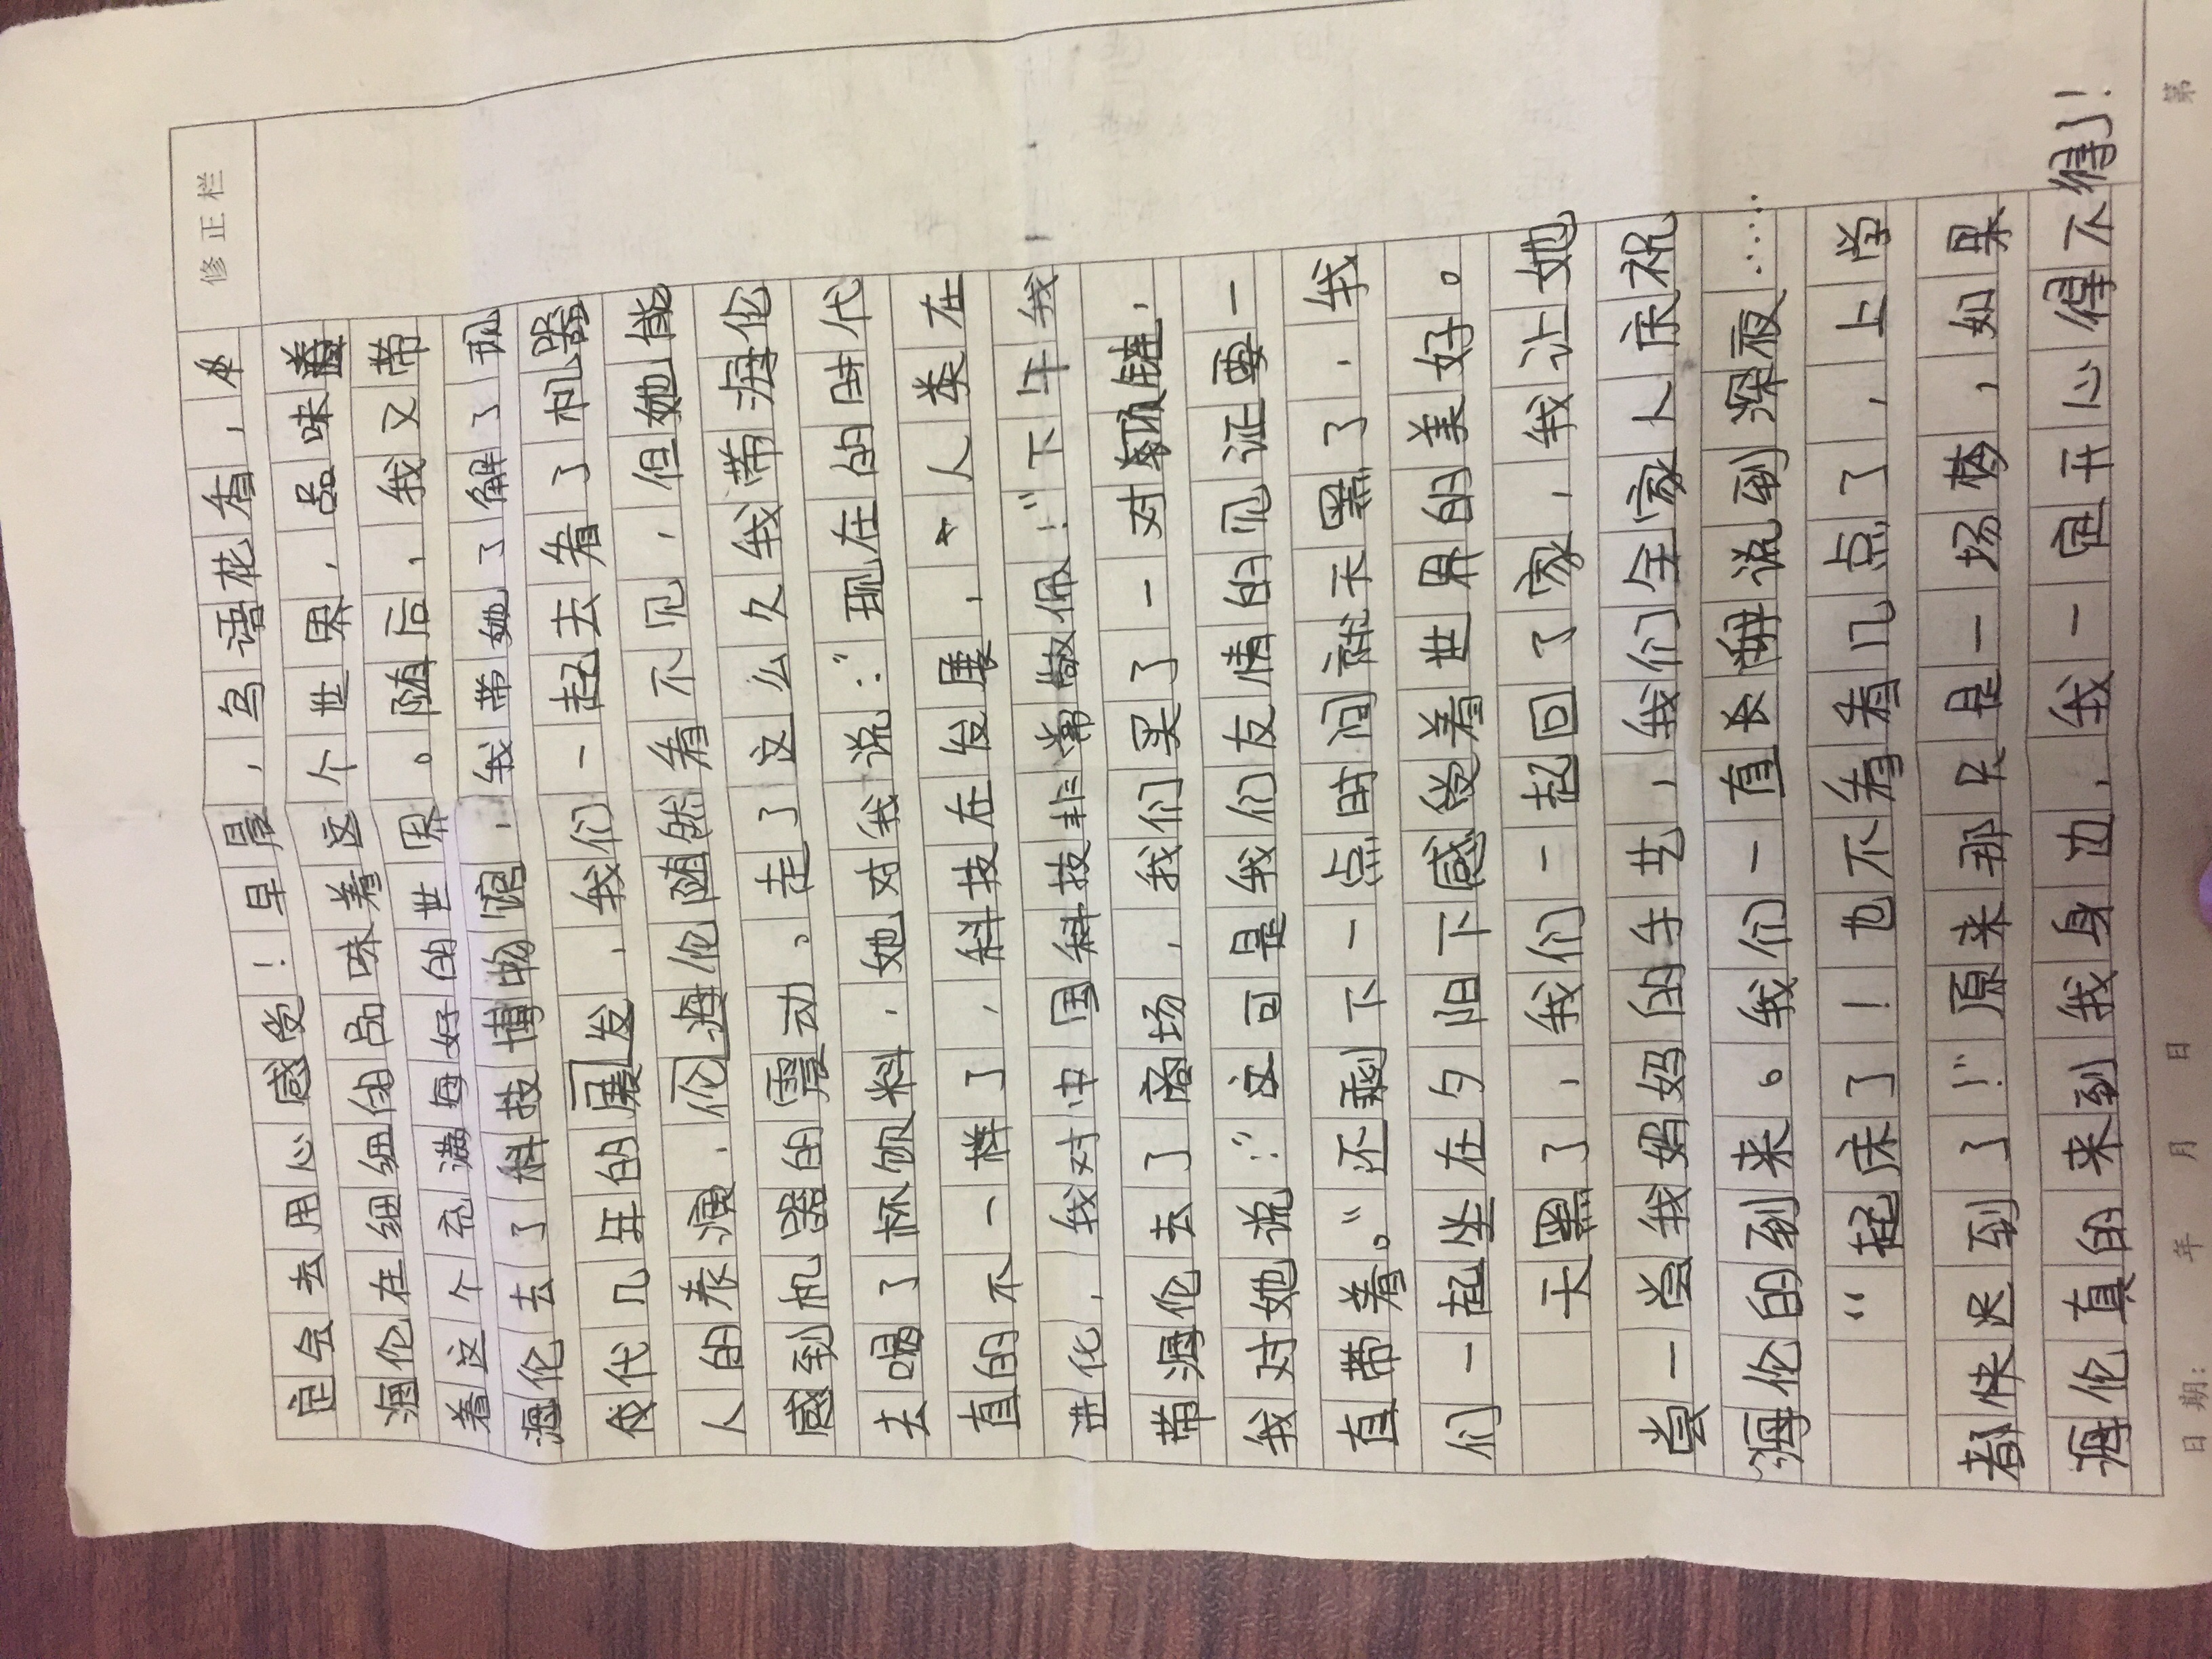 修正栏
定会去用心感受！早晨，鸟语花香，
海伦在细细的品味着这个世界，品味
着这个充满每好的世界。随后，我又带
海伦去了科技博物馆，我带她了解了现
代几年的展发，我们一起去看了机器
人的表演，伦海伦随然看不见，但她能
感到机器的震动。走了这么久我带海伦
去喝了杯饮料，她对我说：“现在的时代
真的不一样了，科技在发展，人类在
进化，我对中国科技非常敬佩！”下午我
带海伦去了商场，我们买了一对项链，
我对她说：“这可是我们友情的见证要一
直带着。”还剩下一点时间就天黑了，我
们一起坐在夕阳下感受着世界的美好。
天黑了，我们一起回了家，我让她
尝一尝我妈妈的手艺，我们全家人庆祝
海伦的到来。我们一直长聊说到深夜……
“起床了！也不看看几点了，上学
都快迟到了！”原来那只是一场梦，如果
海伦真的来到我身边，我一定开心得不得了！
日期： 年 月 日 第